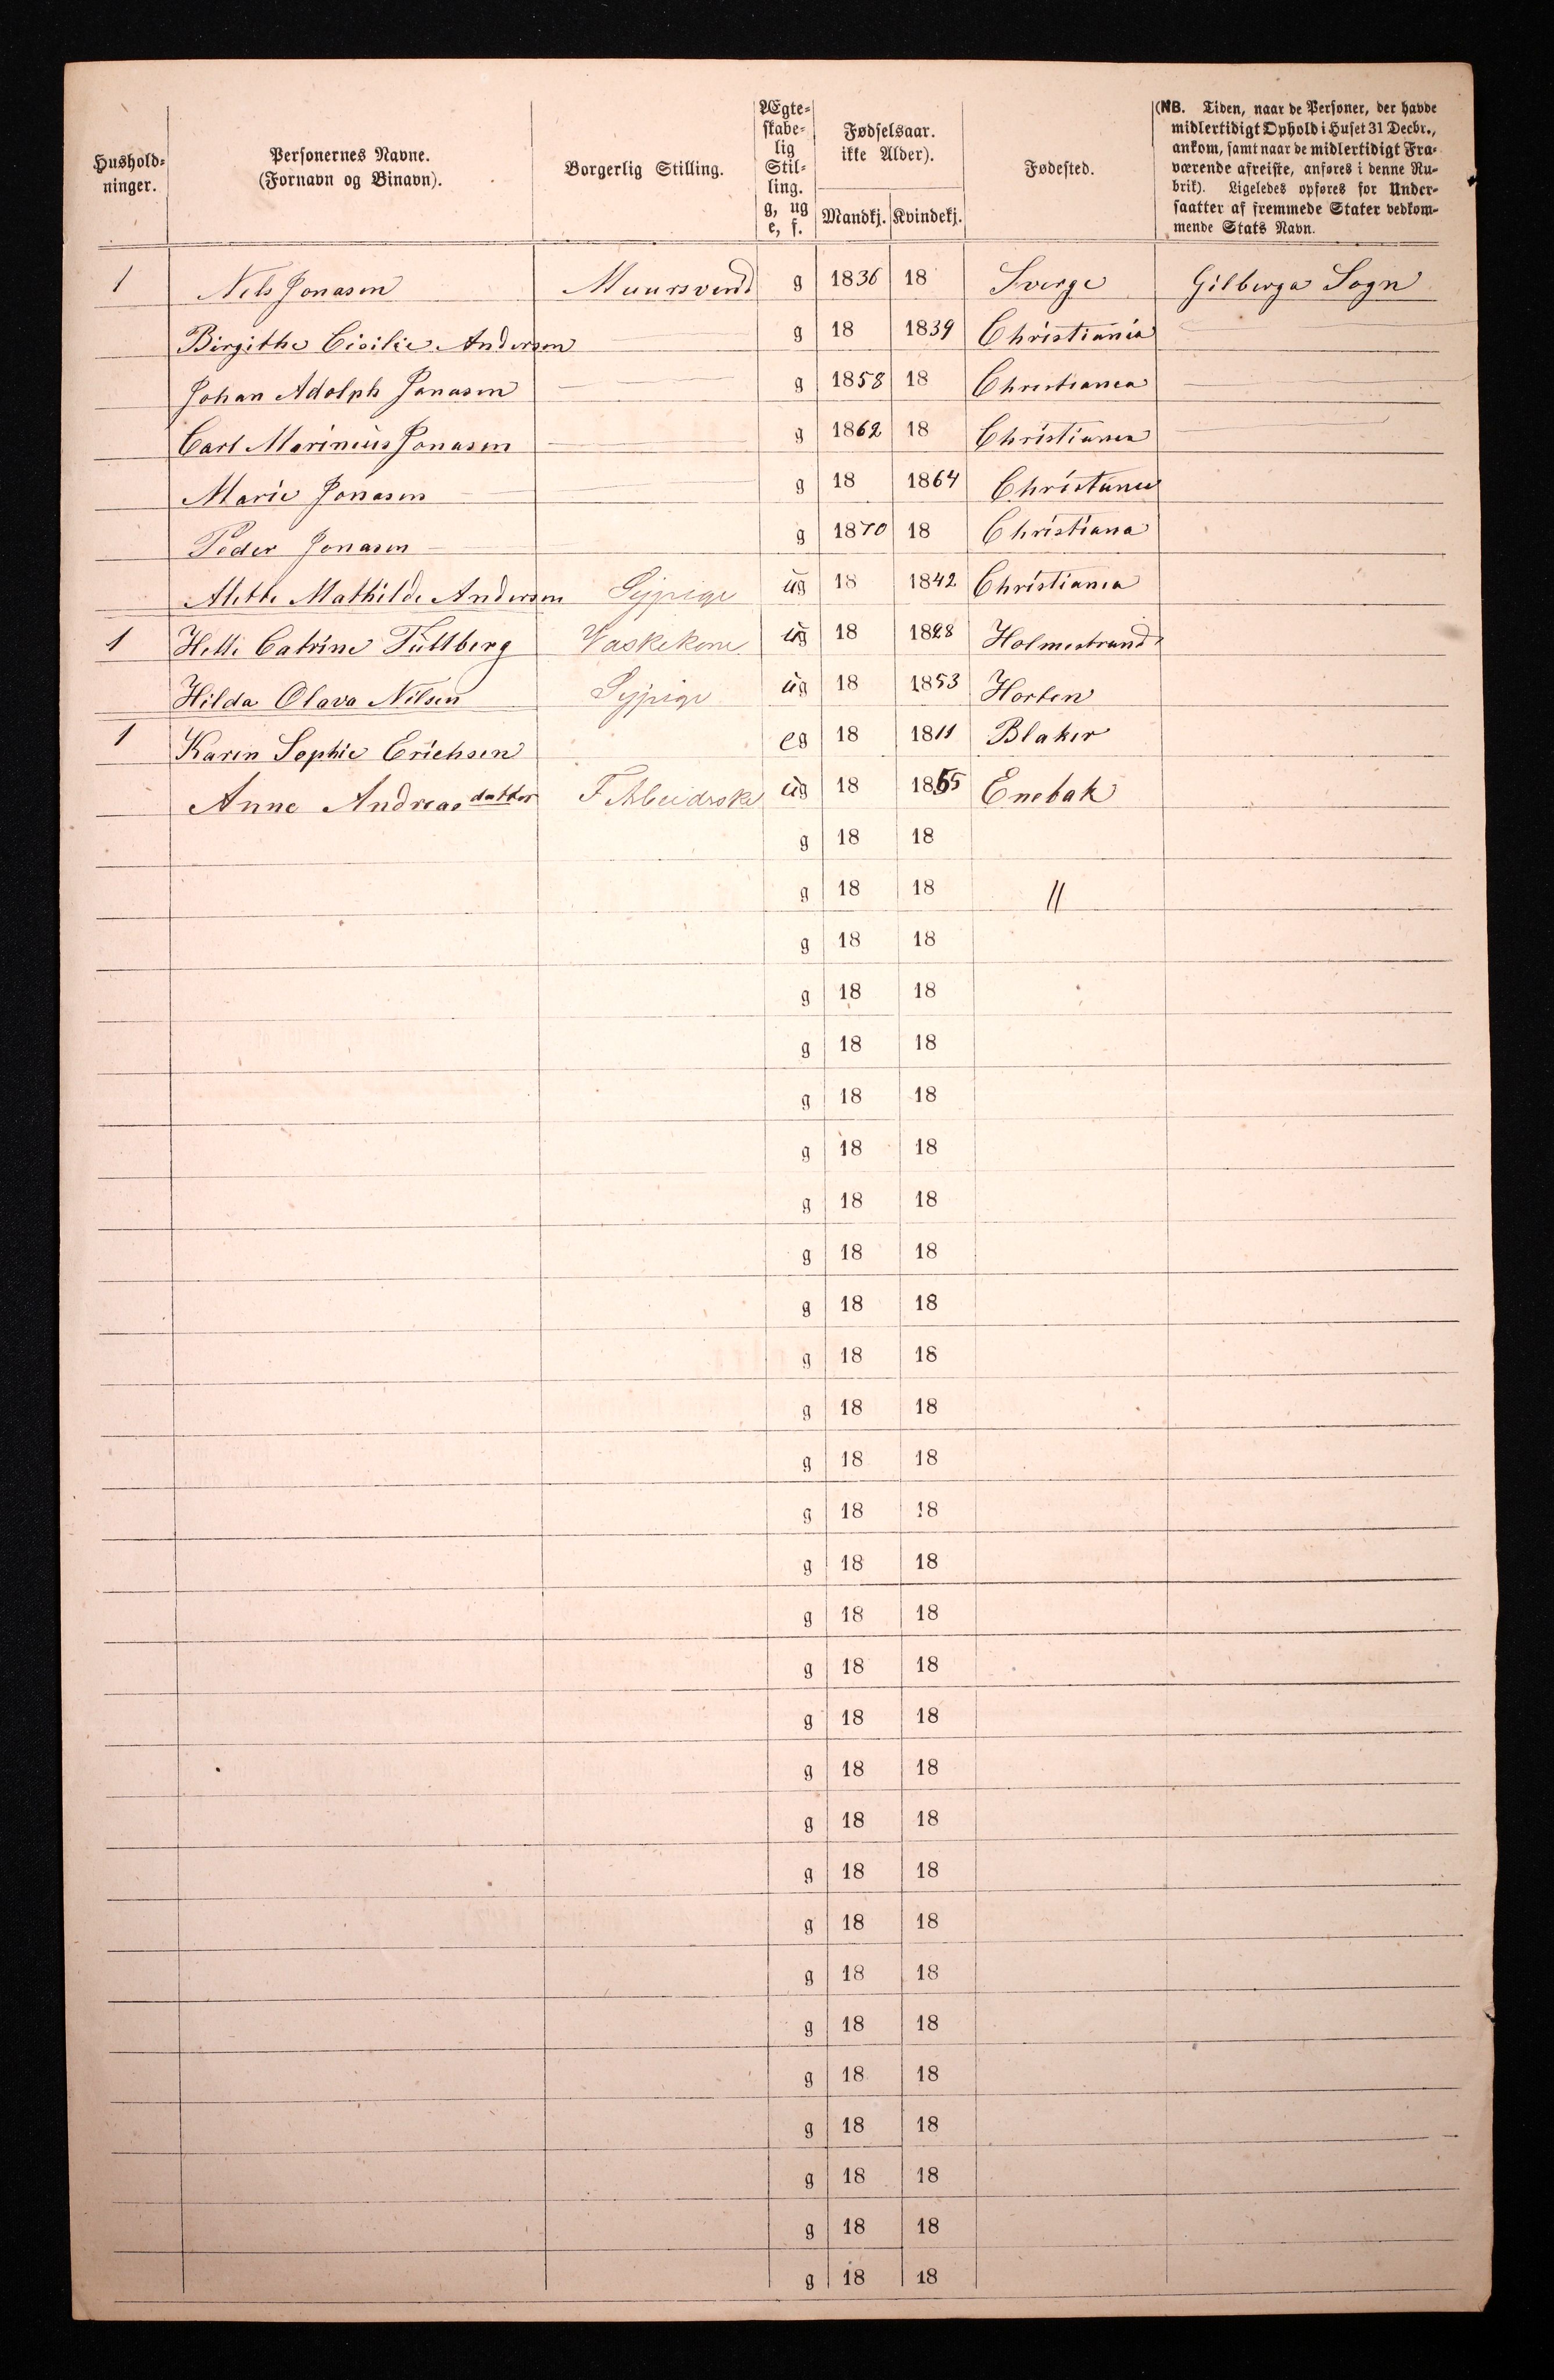 Hushold-
ninger.
Personernes Navne.
(Fornavn og Binavn).
Borgerlig Stilling.
Ægte-
skabe-
lig
Stil-
ling.
g, ug
e, f.
Fødselsaar.
ikke Alder).
Mandkj. Kvindekj.
Fødested.
(NB. Tiden, naar de Personer, der havde
midlertidigt Ophold i Huset 31 Decbr.,
ankom, samt naar de midlertidigt Fra-
værende afreiste, anføres i denne Ru-
brik). Ligeledes opføres for Under-
saatter af fremmede Stater vedkom-
mende Stats Navn.
1 Nels Jonasen Muursvend g 1836 18 Sverge Gilberga Sogn
Birgithe Cicilie Andersen g 18 1839 Christiania
Johan Adolph Jonasen g 1858 18 Christiania
Carl Marinius Jonasen g 1862 18 Christiania
Marie Jonasen g 18 1864 Christiania
Peder Jonasen g 1870 18 Christiana
Alette Mathilde Andersen Sypige ug 18 1842 Christiania
1 Helle Catrine Tullberg Vaskekone ug 18 1828 Holmestrand
Hilda Olava Nilsen Sypige ug 18 1853 Horten
1 Karen Sophie Erichsen eg 18 1811 Blaker
Anne Andreasdatter F Arbeidrske ug 18 1855 Enebak
g 18 18
g 18 18 //
g 18 18
g 18 18
g 18 18
g 18 18
g 18 18
g 18 18
g 18 18
g 18 18
g 18 18
g 18 18
g 18 18
g 18 18
g 18 18
g 18 18
g 18 18
g 18 18
g 18 18
g 18 18
g 18 18
g 18 18
g 18 18
g 18 18
g 18 18
g 18 18
g 18 18
g 18 18
g 18 18